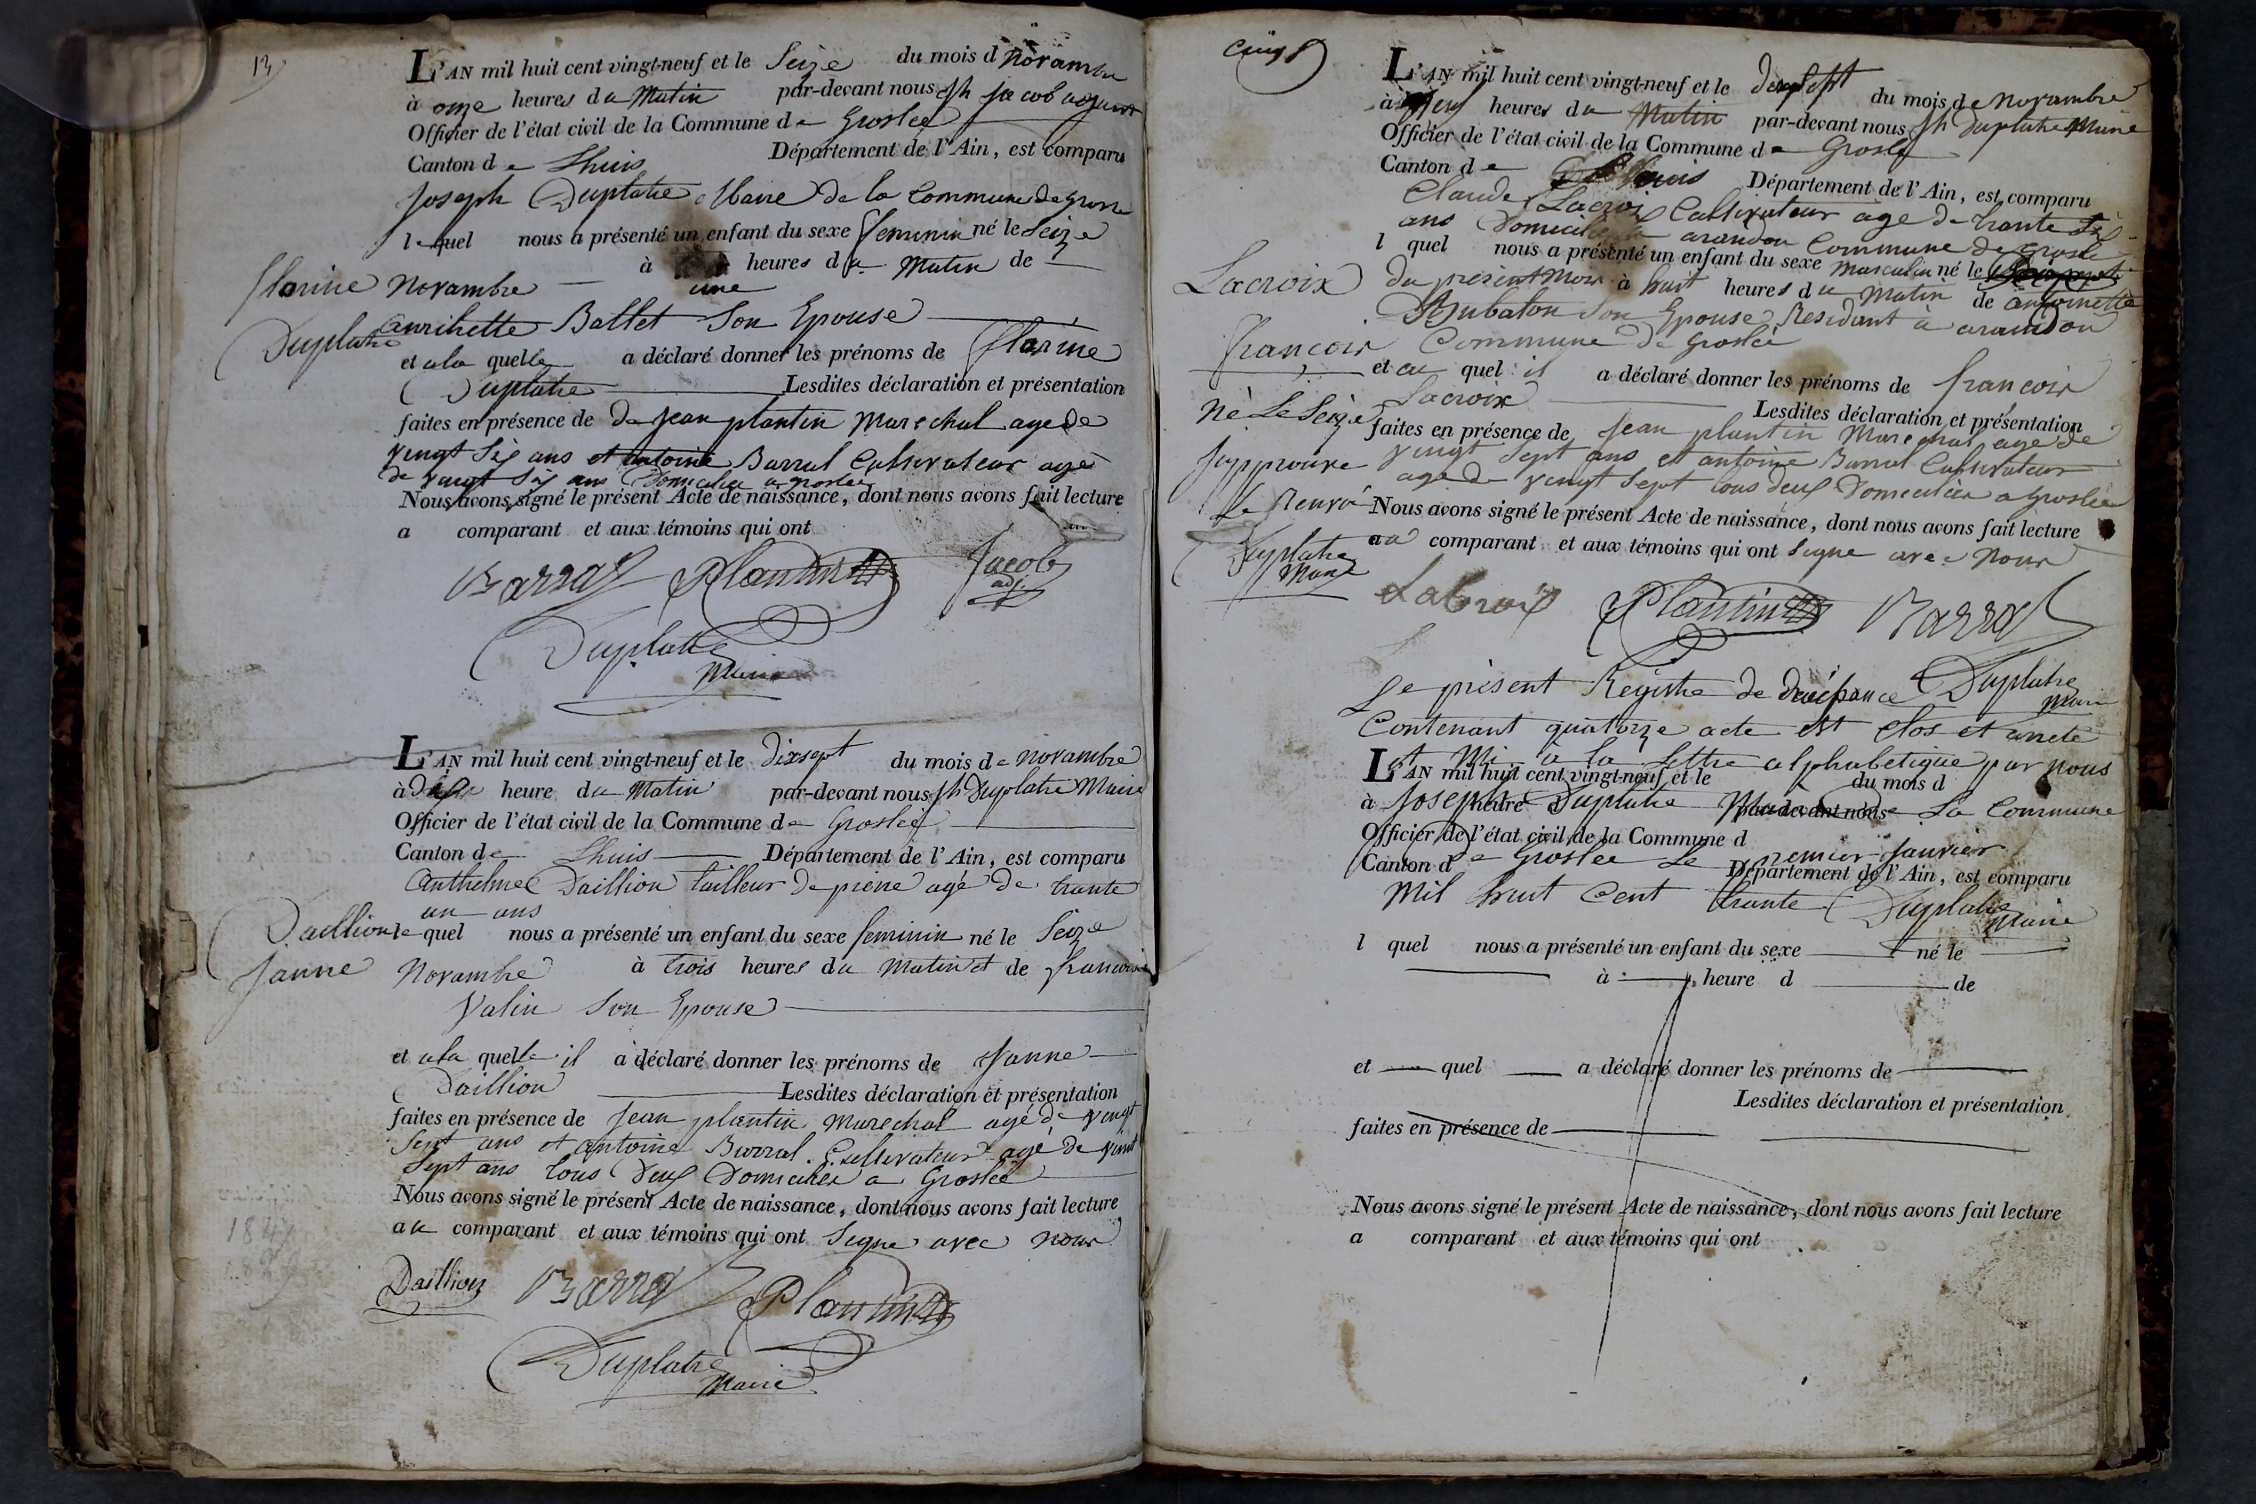 13
L'AN mil huit cent vingt-neuf et le Seize du mois d novambre
à onze heures du Matin par-devant nous Jh Jacob adjoint
Officier de l'état civil de la Commune de Groslée
Canton de Lhuis Département de l'Ain, est comparu
Joseph Duplatre Maire de la Commune de
lequel nous a présenté un enfant du sexe feminin né le Seize
Novambre à une heures du Matin de
florine
Duplatre
Ballet Son Epouse
et ala quelle a déclaré donner les prénoms de florine
Duplatre Lesdites déclaration et présentation
faites en présence de De Jean plantin Marechal age de
vingt Six ans et antoine Barral Cultivateur agé
de vingt Six ans Domicilie a Groslee
Nous avons signé le présent Acte de naissance, dont nous avons fait lecture
a comparant et aux témoins qui ont
Barral Plantin Jacob
adj
Duplatre
Maire
L'AN mil huit cent vingt-neuf et le dixsept du mois de novambre
à heure du Matin par-devant nous Jh Duplatre Maire
Officier de l'état civil de la Commune de Groslée
Canton de Lhuis Département de l'Ain, est comparu
Anthelme Daillion tailleur de piérre agé de trante
un ans
Daillion
Janne
lequel nous a présenté un enfant du sexe feminin né le Seize
Novambre à trois heures du Matin et de francoise
Valin Son Epouse
et ala quelle il a déclaré donner les prénoms de Janne
Daillion Lesdites déclaration et présentation
faites en présence de Jean plantin Marechal agé de vingt
Sept ans et antoine Barral Cultivateur agé de vint
Sept ans tous Deux Domicilies a Groslée
Nous avons signé le présent Acte de naissance, dont nous avons fait lecture
au comparant et aux témoins qui ont Signe avec nous
Daillion Barral Plantin
Duplatre
Maire
L'AN mil huit cent vingt-neuf et le dixsept du mois de novambre
à heures du Matin par-devant nous Jh Duplatre Maire
Officier de l'état civil de la Commune de Groslé
Canton de Département de l'Ain, est comparu
Claude Lacroix Cultivateur age de trante Six
ans Domicilie a arandon Commune de Groslé
l quel nous a présenté un enfant du sexe masculin né le
du present Mois à huit heures du Matin de antoinette
Rubaton Son Epouse Residant à arandon
Commune De Groslée
et au quel il a déclaré donner les prénoms de francoix
Lacroix Lesdites déclaration et présentation
faites en présence de Jean plantin Marechal age de
vingt Sept ans et antoine Barral Cultivateur
age de vingt Sept tous deux Domicilies a Groslée
Nous avons signé le présent Acte de naissance, dont nous avons fait lecture
au comparant et aux témoins qui ont Signe avec Nous
Lacroix
francoix
Né Le Seize
J'approuve
Le Renvoi
Duplatre
Maire
Lacroix Plantin Barral
Le présent Registre de naissance Duplatre
Maire
Contenant quatorze acte est Clos et arreté
et Mi à la Lettre alphabetique par nous
Joseph Duplatre Maire de La Commune
de Groslée Le premier Janvier
Mil huit Cent trante Duplatre
Maire
L'AN mil huit cent vingt-neuf et le du mois d
à heure d par-devant nous
Officier de l'état civil de la Commune d
Canton d Département de l'Ain, est comparu
l quel nous a présenté un enfant du sexe né le
à heure d de
et quel a déclaré donner les prénoms de
Lesdites déclaration et présentation
faites en présence de
Nous avons signé le présent Acte de naissance, dont nous avons fait lecture
a comparant et aux témoins qui ont